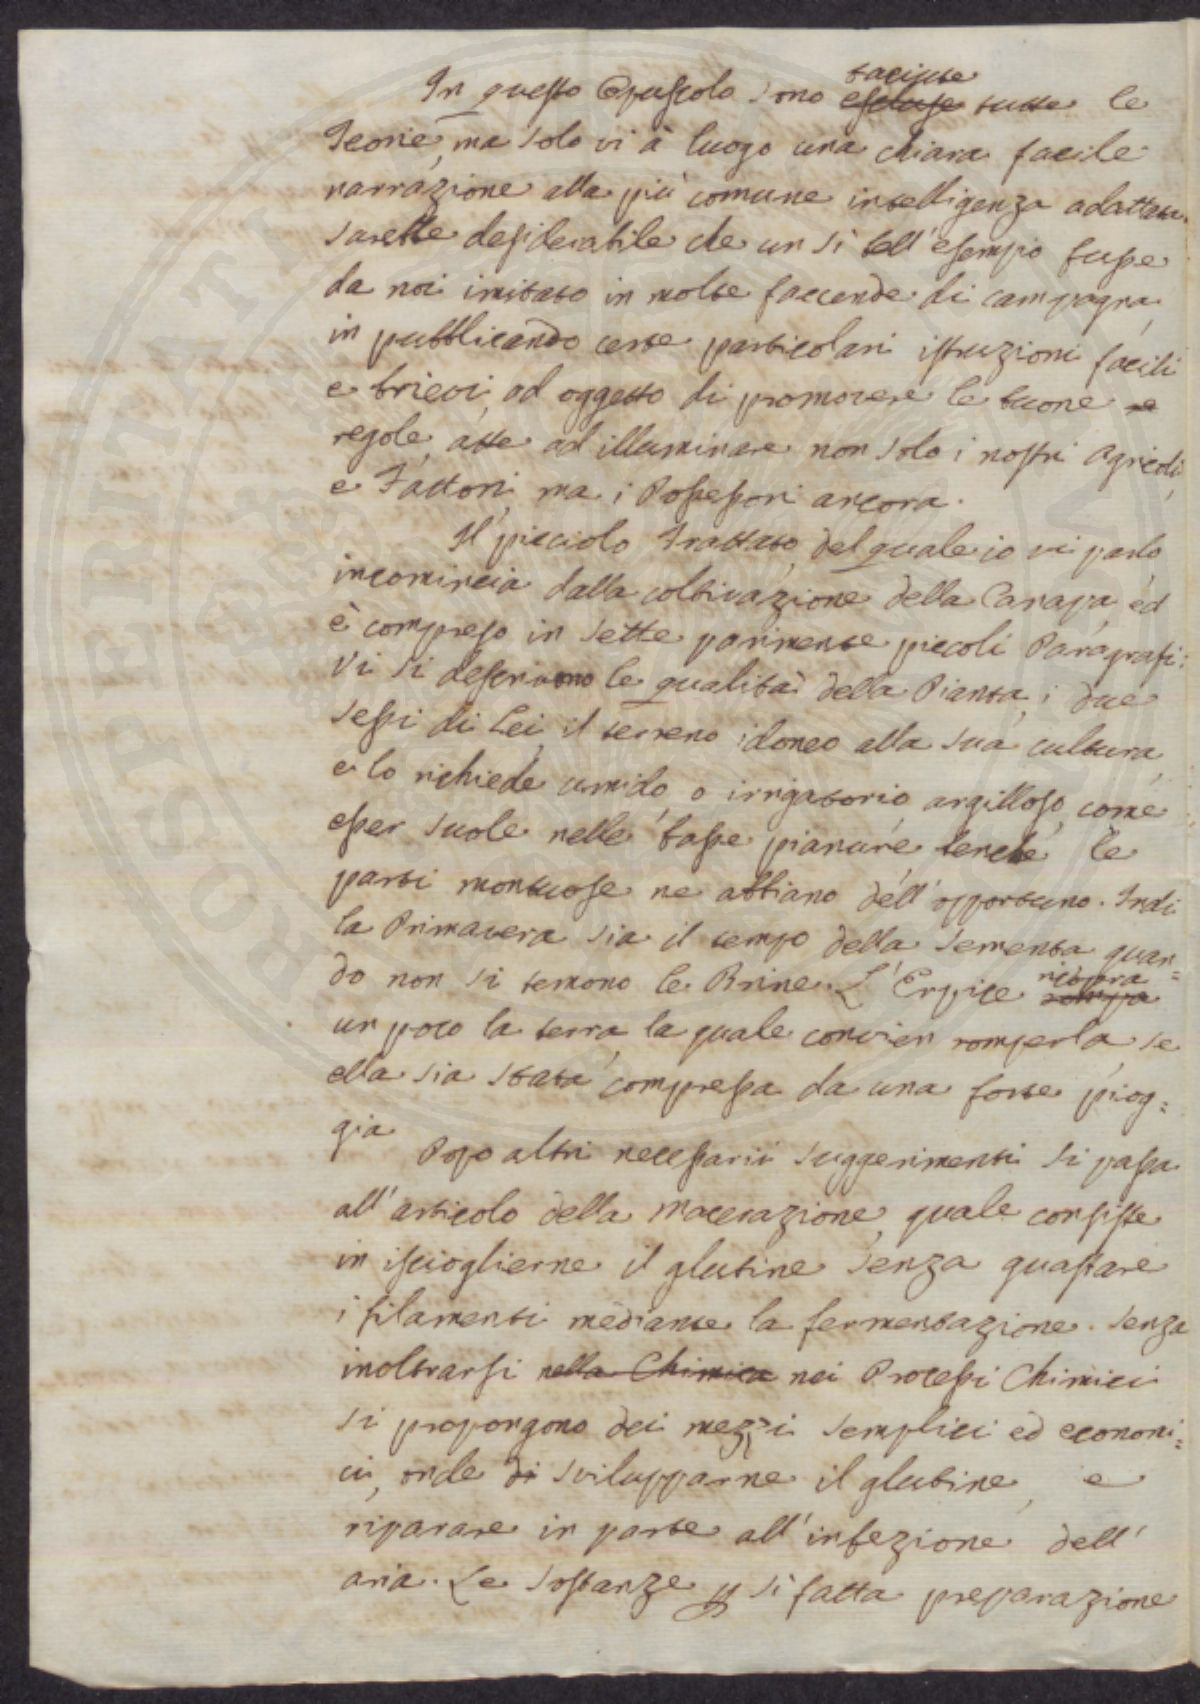 In questo Opuscolo sono taciute escluse tutte le
Teorie, ma solo vi à luogo una chiara facile
narrazione alla più comune intelligenza adattata.
Sarebbe desiderabile che un sì bell'esempio fusse
da noi imitato in molte faccende di campagna,
in pubblicando certe particolari istruzioni facili
e brievi, ad oggetto di promovere le buone re
regole, atte ad illuminare non solo i nostri Agricoli,
e Fattori, ma i Possessori ancora.
Il picciolo Trattato, del quale io vi parlo
incomincia dalla coltivazione della Canapa, ed
è compreso in sette parimente piccoli Paragrafi:
Vi si descrivono le qualità della Pianta, i due
sessi di Lei, il terreno idoneo alla sua cultura,
e lo richiede umido o irrigatorio, argilloso, come
esser suole nelle basse pianure benchè le
parti montuose ne abbiano dell'opportuno. Indi
la Primavera sia il tempo della sementa quan=
do non si temono le Brine. L'Erpice ricopra rompa
un poco la terra, la quale convien romperla, se
ella sia stata compressa da una forte piog=
gia
Dopo altri necessarii suggerimenti si passa
all'articolo della macerazione, quale consiste
in iscioglierne il glutine senza guastare
i filamenti mediante la fermentazione. Senza
inoltrarsi nella Chimica nei Processi Chimici
si propongono dei mezzi semplici ed economi=
ci, onde di svilupparne il glutine, e
riparare in parte all'infezione dell'
aria. Le sostanze p sì fatta preparazione